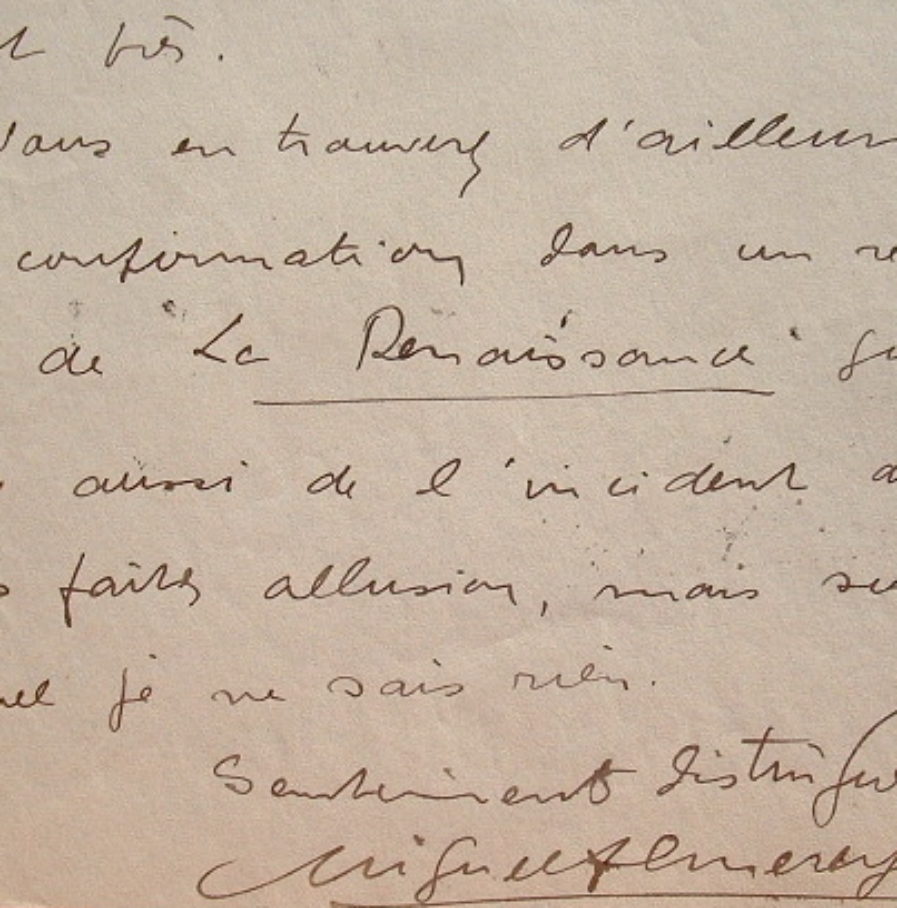 très.
Vous en trouverez d'ailleurs
confirmation dans un re
de "La Renaissance" qu
aussi de l'incident a
faites allusion, mais su
quel je ne sais rien.
Sentiments distingu
Miguel Almereyd